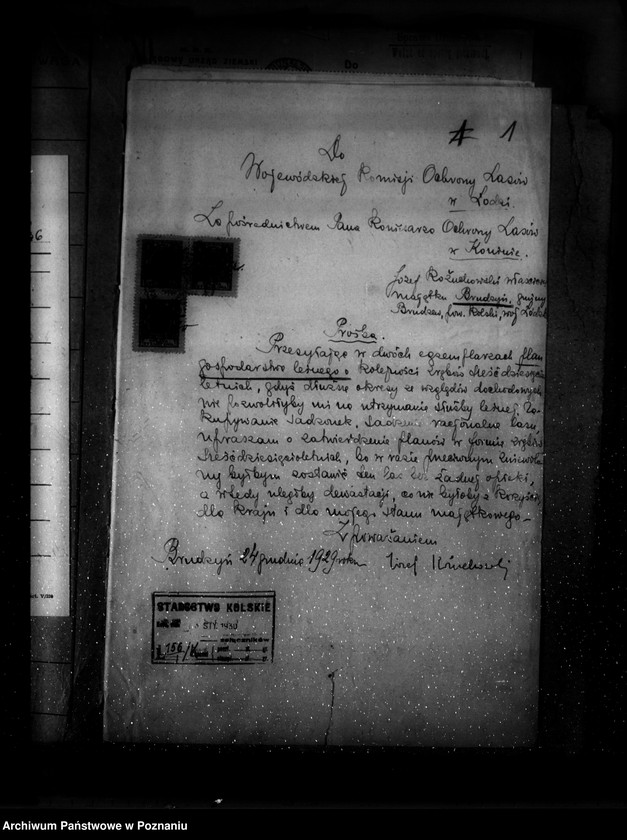 1
Do
Wojewódzkiej Komisji Ochrony Lasów
w Łodzi.
Za pośrednictwem Pana Komisarza Ochrony Lasów
w Koninie.
Józef Kożuchowski
majątku Brudzyń, gminy
Brudzew, pow. Kolski, woj. Łódzk
Prośba.
Przesyłając w dwóch egzemplarzach plan
gospodarstwa leśnego o kolejności zrębów sześćdziesięcio
letnich, gdyż dłuższe okresy ze względów dochodowych
nie pozwoliłyby mi na utrzymanie służby leśnej, za-
kupywanie sadzonek, sadzenie racjonalne lasu,
upraszam o zatwierdzenie planów w formie zrębów
sześćdziesięcioletnich, bo w razie przeciwnym
byłbym zostawić ten las bez żadnej opieki,
a wtedy uległby dewastacji, co nie byłoby z korzyścią
dla kraju i dla mojego stanu majątkowego.
Z poważaniem
Brudzyń 24 grudnia 1929 roku Józef
STAROSTWO KOLSKIE
STY. 1930
156
Archiwum Państwowe w Poznaniu